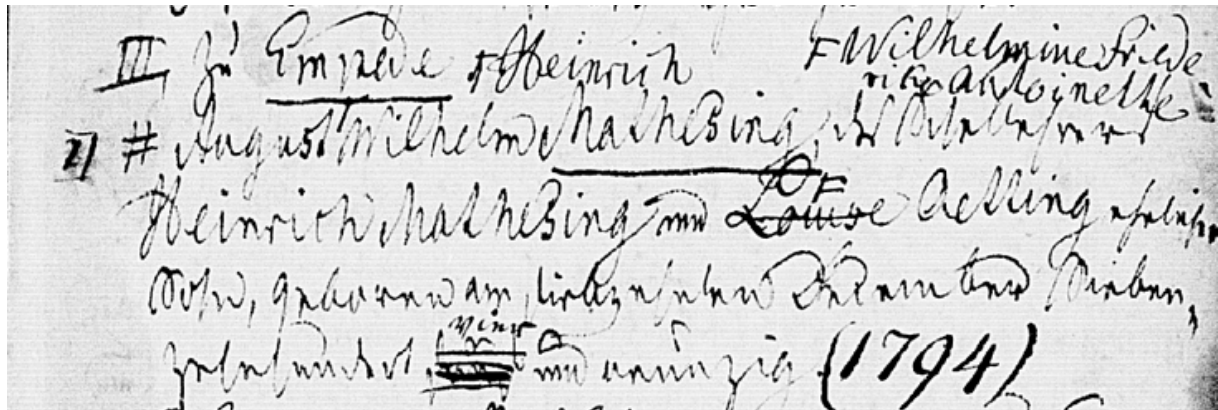 III, Zu Empede ₮ Heinrich F Wilhelmine Friede-
rike Antoinette
2) # August Wilhelm Matheßing, des Schullehrers
Heinrich Matheßing und Louise F Aetting ehelicher
Sohn, geboren am siebzehnten Dezember Sieben-
zehnhundert vier und neunzig (1794)